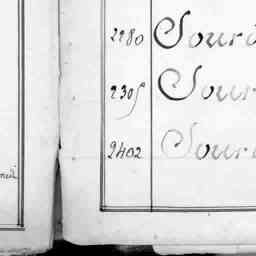 2280 Sour
2305 Sour
2402 Sour